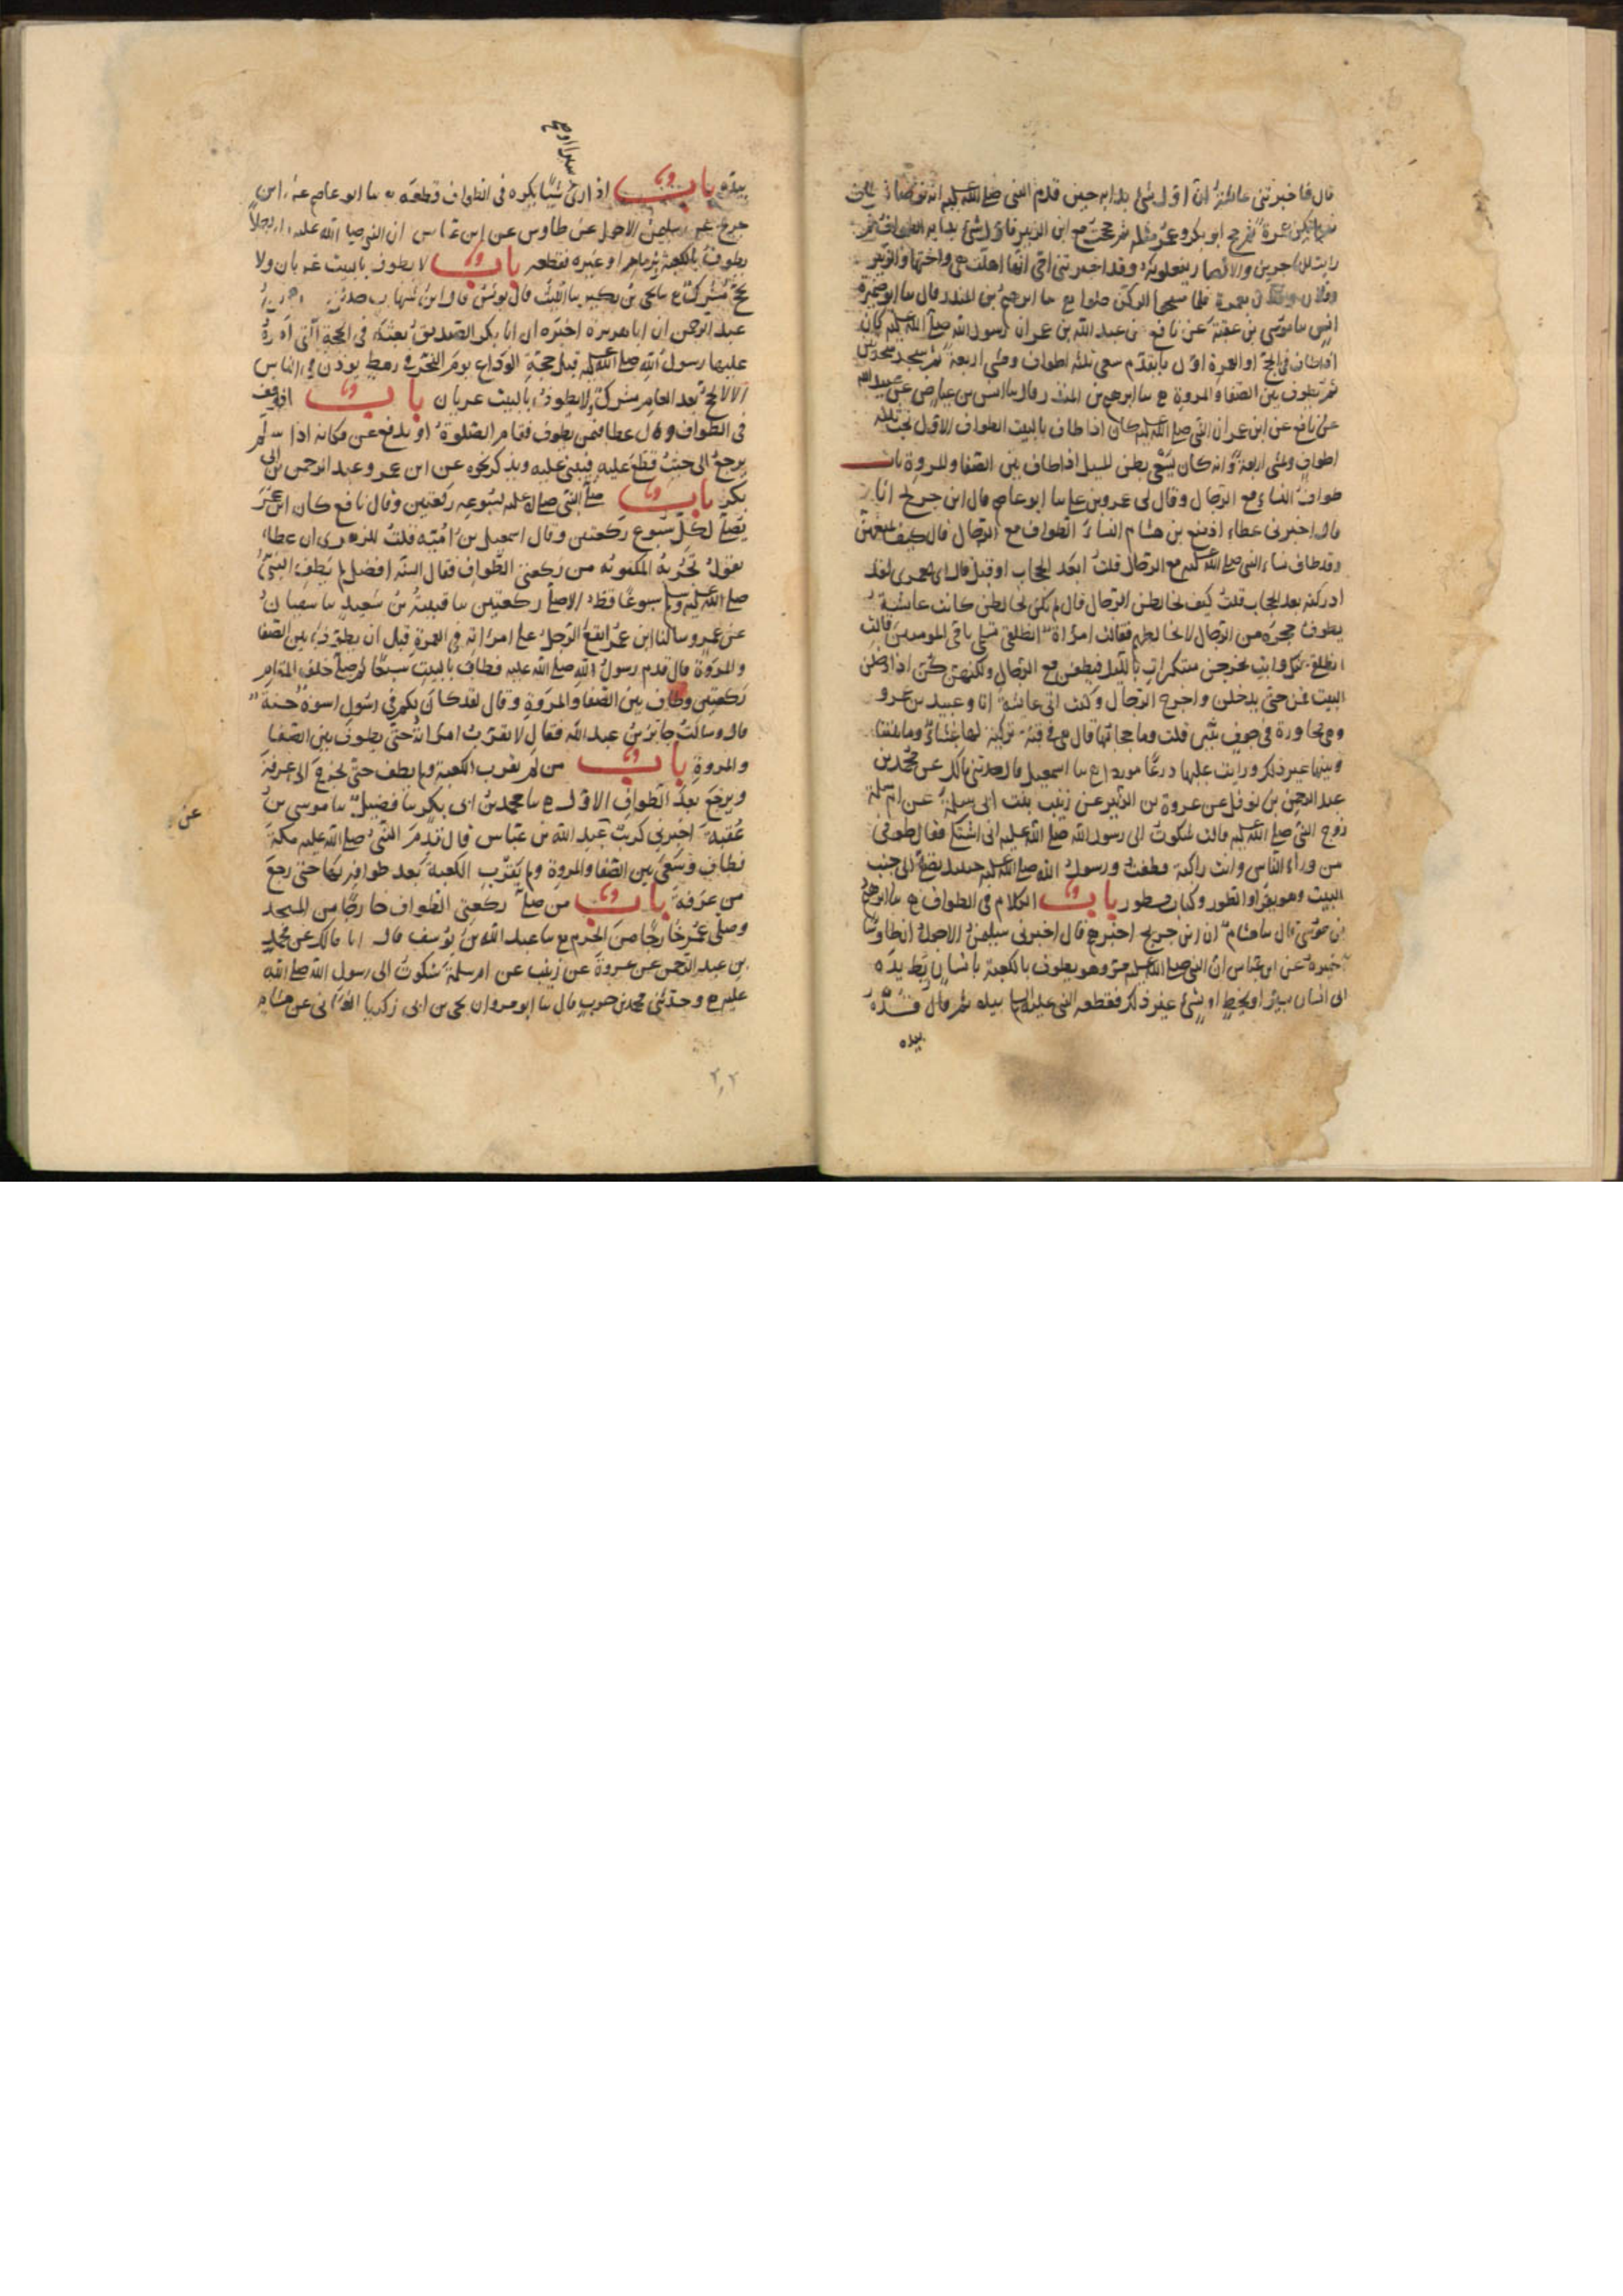 قال فاخبرتنى عائشة ان اول شئ بدا به حين قدم النبى صلى الله عليه انه توضا ثم طاف
ثم لم تكن عمرة ثم حج ابو بكر وعمر مثله ثم حججت مع ابن الزبير فاول شئ بدا به الطواف ثم
رايت المهاجرين والانصار يفعلونه وقد اخبرتنى امى انها اهلت هى واختها والزبير
وفلان وفلان بعمرة فلما مسحوا الركن حلوا ابرهيم بن المنذر قال ابو ضمرة
انس موسى بن عقبة عن نافع عن عبد الله بن عمر ان رسول الله صلى الله عليه كان
اذا طاف فى الحج او العمرة اول ما يقدم سعى ثلثة اطواف ومشى اربعة ثم سجد سجدتين
ثم يطوف بين الصفا والمروة ابرهيم بن المنذر قال انس بن عياض عن عبيد الله
عن نافع عن ابن عمر ان النبى صلى الله عليه كان اذا طاف بالبيت الطواف الاول يخب ثلثة
اطواف ومشى اربعة وانه كان يسعى بطن المسيل اذا طاف بين الصفا والمروة باب
طواف النساء مع الرجال وقال لى عمرو بن على ابو عاصم قال ابن جريج انا
قال اخبرنى عطاء اذ منع بن هشام النساء الطواف مع الرجال قال كيف تمنعهن
وقد طاف نساء النبى صلى الله عليه مع الرجال قلت ابعد الحجاب او قبل قال اى لعمرى لقد
ادركته بعد الحجاب قلت كيف يخالطن الرجال قال لم يكن يخالطن كانت عايشة
يطوف حجرة من الرجال لا تخالطهم فقالت امراة انطلقى نستلم يا ام المومنين قالت
انطلقى عنك وابت يخرجن متنكرات بالليل فيطفن مع الرجال ولكنهن كن اذا دخلن
البيت قمن حتى يدخلن واخرج الرجال وكنت اتى عائشة انا وعبيد بن عمرو
وهى مجاورة فى جوف ثبير قلت وما حجابها قال هى فى قبة تركية لها غشاء وما بيننا
وبينها غير ذلك ورايت عليها درعا موردا اسمعيل قال حدثنى مالك عن محمد بن
عبد الرحمن بن نوفل عن عروة بن الزبير عن زينب بنت ابى سلمة عن ام سلمة
زوج النبى صلى الله عليه قالت شكوت الى رسول الله صلى الله عليه انى اشتكى فقال طوفى
من وراء الناس وانت راكبة فطفت ورسول الله صلى الله عليه حينئذ يصلى الى جنب
البيت وهو يقرا والطور وكتاب مسطور باب الكلام فى الطواف ابرهيم
بن موسى قال هشام ان ابن جريج اخبرهم قال اخبرنى سليمن الاحول ان طاوسا
اخبره عن ابن عباس ان النبى صلى الله عليه مر وهو يطوف بالكعبة بانسان ربط يده
الى انسان بسير او بخيط او بشئ غير ذلك فقطعه النبى عليه السلام بيده ثم قال قده
بيده
بيده باب اذا راى شيئا يكره فى الطواف قطعه به ابو عاصم عن ابن
جريج عن سليمن الاحول عن طاوس عن ابن عباس ان النبى صلى الله عليه راى رجلا
يطوف بالكعبة بزمام او غيره فقطعه باب لا يطوف بالبيت عريان ولا
يحج مشرك يحيى بن بكير الليث قال يونس قال ابن شهاب حدثنى
عبد الرحمن ان ابا هريرة اخبره ان ابا بكر الصديق بعثه فى الحجة التى امره
عليها رسول الله صلى الله عليه قبل حجة الوداع يوم النحر فى رهط يوذن فى الناس
الا لا يحج بعد العام مشرك ولا يطوف بالبيت عريان باب اذا وقف
فى الطواف وقال عطا فيمن يطوف فتقام الصلوة او يدفع عن مكانه اذا سلم
يرجع الى حيث قطع عليه فيبنى عليه ويذكر نحوه عن ابن عمر وعبد الرحمن بن ابى
بكر باب صلى النبى صلى الله عليه لسبوعه ركعتين وقال نافع كان ابن عمر
يصلى لكل سبوع ركعتين وقال اسمعيل بن امية قلت للزهرى ان عطاء
يقول تجزئه المكتوبة من ركعتى الطواف فقال السنة افضل لم يطف النبى
صلى الله عليه وسلم سبوعا قط الا صلى ركعتين قتيبة بن سعيد سفيان
عن عمرو سالنا ابن عمر ايقع الرجل على امراته فى العمرة قبل ان يطوف بين الصفا
والمروة قال قدم رسول الله صلى الله عليه فطاف بالبيت سبعا ثم صلى خلف المقام
ركعتين وطاف بين الصفا والمروة وقال لقد كان لكم فى رسول اسوة حسنة
قال وسالت جابر بن عبد الله فقال لا يقرب امراته حتى يطوف بين الصفا
والمروة باب من لم يقرب الكعبة ولم يطف حتى يخرج الى عرفة
ويرجع بعد الطواف الاول محمد بن ابى بكر فضيل موسى بن
عقبة اخبرنى كريب عبد الله بن عباس قال قدم النبى صلى الله عليه مكة
فطاف وسعى بين الصفا والمروة ولم يقرب الكعبة بعد طوافه بها حتى رجع
من عرفة باب من صلى ركعتى الطواف خارجا من المسجد
وصلى عمر خارجا من الحرم عبد الله بن يوسف قال انا مالك عن محمد
بن عبد الرحمن عن عروة عن زينب عن ام سلمة شكوت الى رسول الله صلى الله
عليه وحدثنى محمد بن حرب قال ابو مروان يحيى بن ابى زكريا الغسانى عن هشام
عن